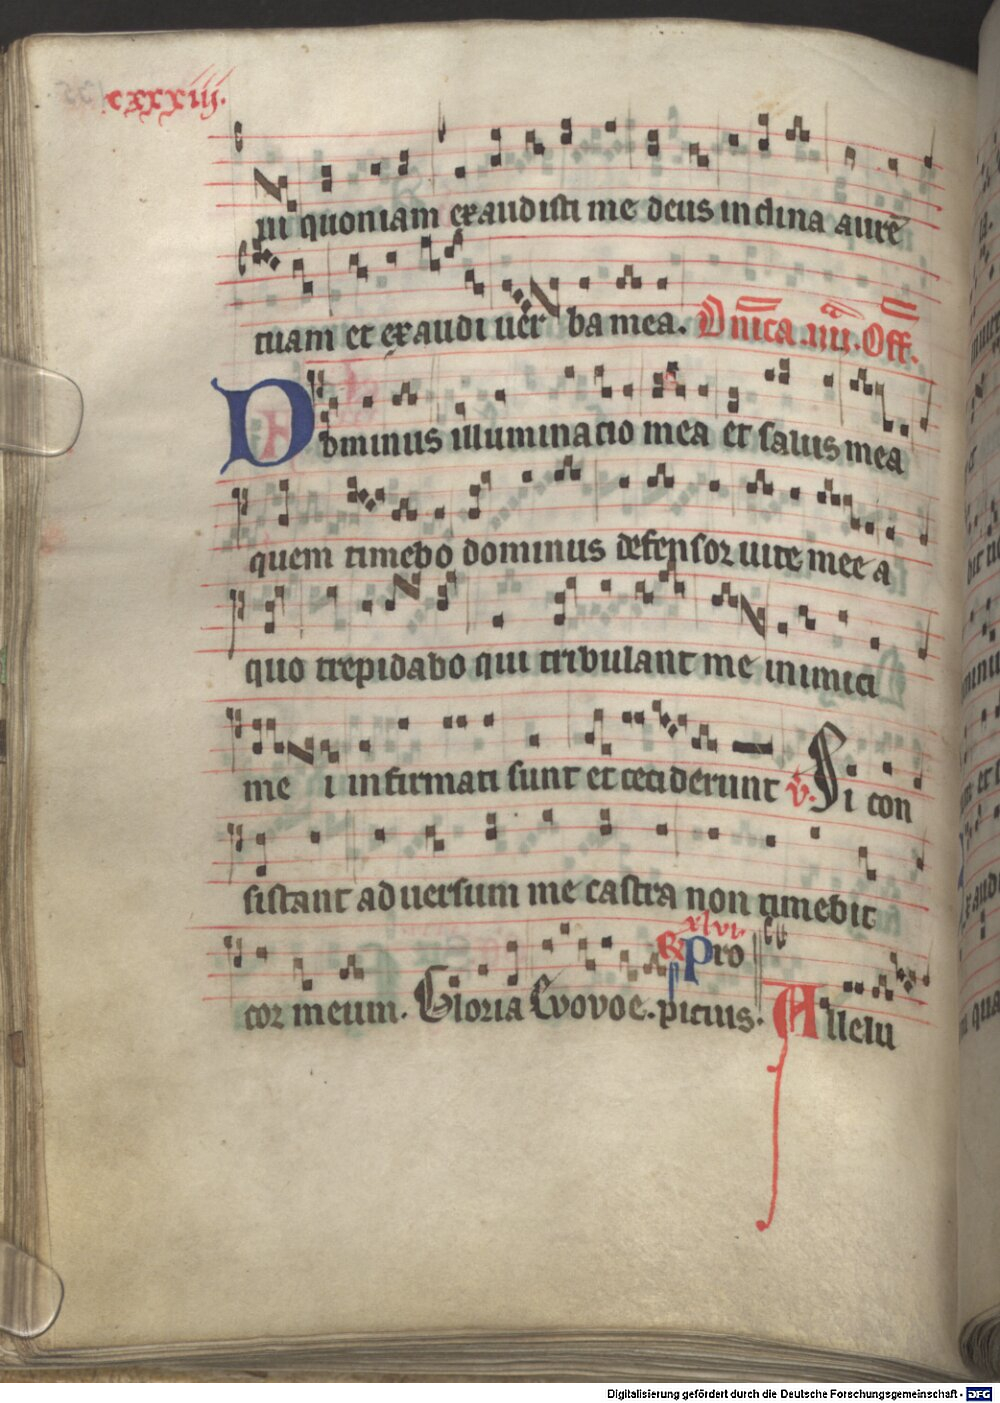 cxxxiij.
ui quoniam exaudisti me deus inclina aurē
tuam et exaudi uer ba mea. Dn̄ica .iiii. Off̄.
Dominus illuminatio mea et salus mea
quem timebo dominus defensor uite mee a
quo trepidabo qui tribulant me inimici
me i infirmati sunt et ceciderunt v. Si con
sistant aduersum me castra non timebit
xlvi
cor meum. Gloria Evovoe. R Pro
picius. Allelu
Digitalisierung gefördert durch die Deutsche Forschungsgemeinschaft - DFG